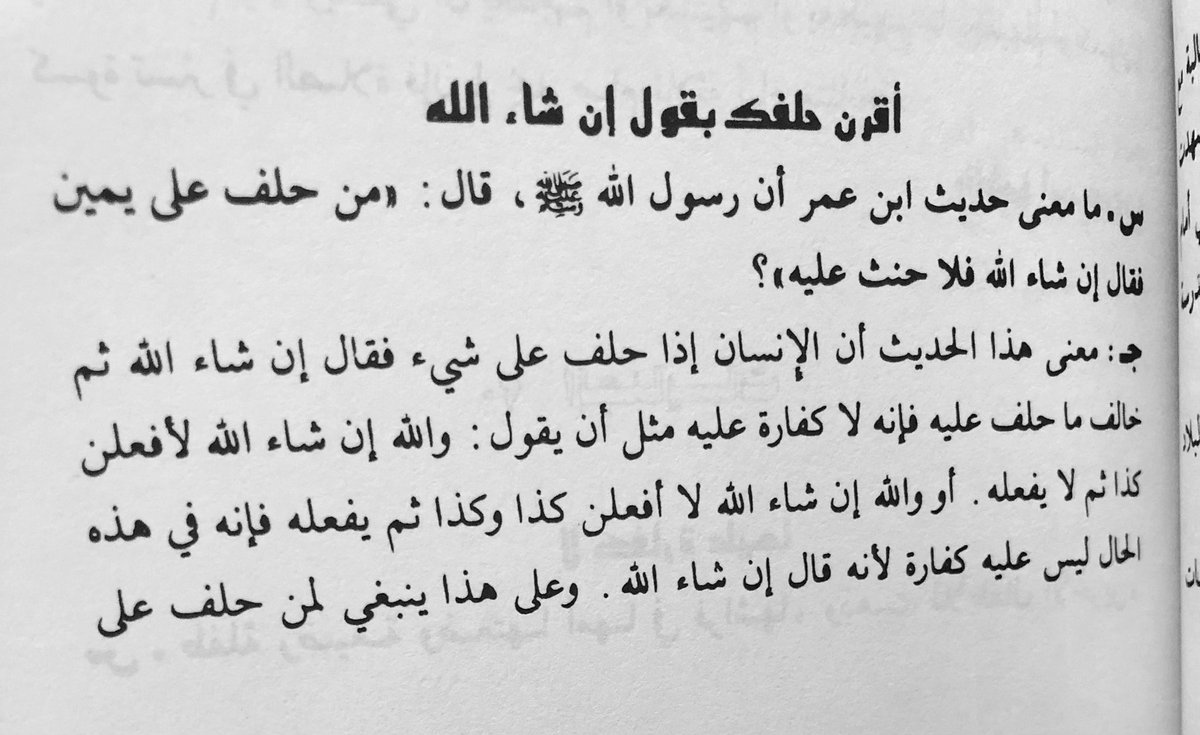 أقرن حلفك بقول إن شاء الله
س . ما معنى حديث ابن عمر أن رسول الله ﷺ ، قال : «من حلف على يمين
فقال إن شاء الله فلا حنث عليه»؟
جـ : معنى هذا الحديث أن الإنسان إذا حلف على شيء فقال إن شاء الله ثم
خالف ما حلف عليه فإنه لا كفارة عليه مثل أن يقول : والله إن شاء الله لأفعلن
كذا ثم لا يفعله . أو والله إن شاء الله لا أفعلن كذا وكذا ثم يفعله فإنه في هذه
الحال ليس عليه كفارة لأنه قال إن شاء الله . وعلى هذا ينبغي لمن حلف على